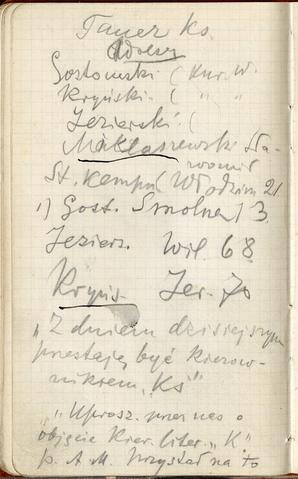 Tauer ks.
Gostomski ( Kur. W.
Kryński ( " "
Jezierski (
Makłaszewski Na-
wromił
St. Kempń Włodzim 21
1) Gost. Smolna 13.
Jeziers. Wil. 68
Kryńs. Jer. 70
„Z dniem dzisiejszym
przestaję być kierow-
nikiem „Ks"
„Uprosz. przez nas o
objęcie kier. liter. „K"
p. A. M. przystał na to